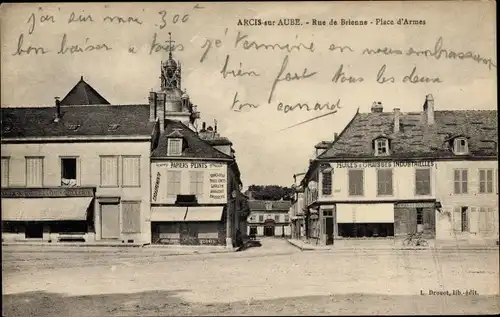 ARCIS sur AUBE. - Rue de Brienne - Place d'Armes
j'ai sur moi 300
bon baiser à tous je termine en vous embrassant
bien fort tous les deux
ton canard
PAPIERS PEINTS
HUILES & GRAISSES INDUSTRIELLES
L. Drouot, lib.-édit.